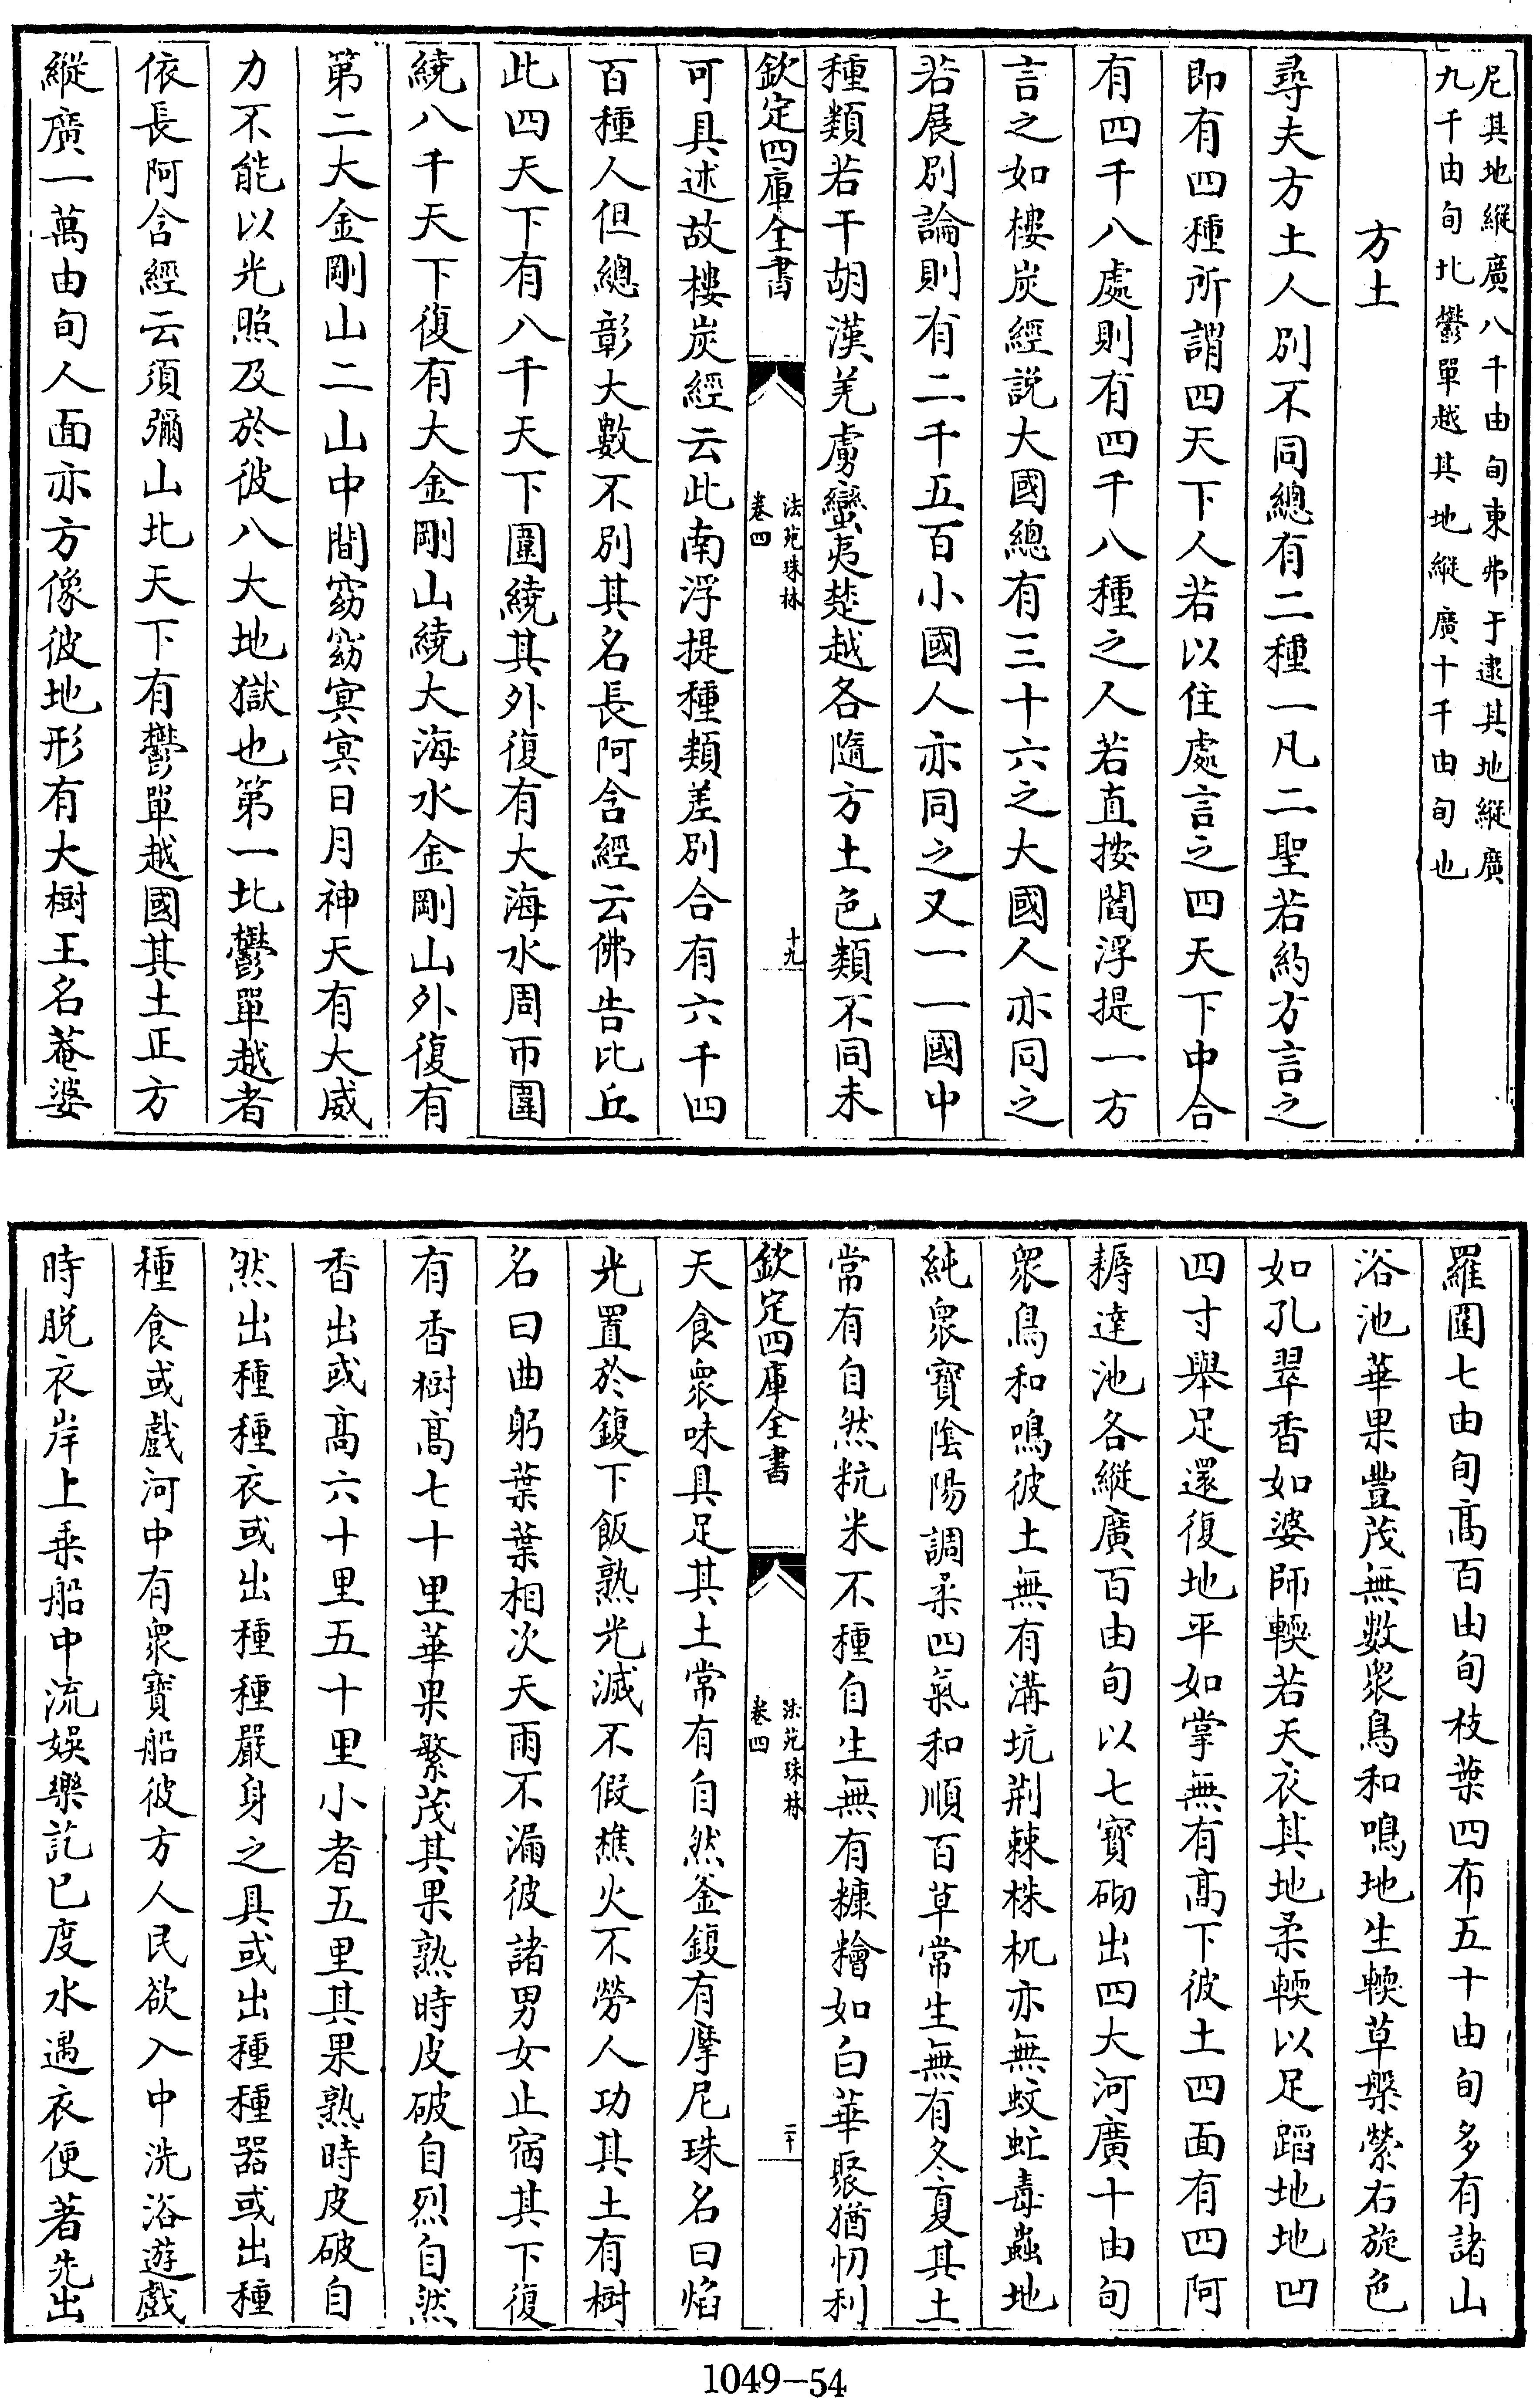 尼其地縱廣八千由旬東弗于逮其地縱廣
九千由旬北鬱單越其地縱廣十千由旬也
方土
尋夫方土人別不同總有二種一凡二聖若約方言之
即有四種所謂四天下人若以住處言之四天下中合
有四千八處則有四千八種之人若直按閻浮提一方
言之如樓炭經説大國總有三十六之大國人亦同之
若展別論則有二千五百小國人亦同之又一一國中
種類若干胡漢羌虜蠻夷楚越各隨方土色類不同未
欽定四庫全書
法苑珠林
卷四
十九
可具述故樓炭經云此南浮提種類差別合有六千四
百種人但總彰大數不別其名長阿含經云佛告比丘
此四天下有八千天下圍繞其外復有大海水周帀圍
繞八千天下復有大金剛山繞大海水金剛山外復有
第二大金剛山二山中間窈窈冥冥日月神天有大威
力不能以光照及於彼八大地獄也第一北鬱單越者
依長阿含經云須彌山北天下有鬱單越國其土正方
縱廣一萬由旬人面亦方像彼地形有大樹王名菴婆
羅圍七由旬髙百由旬枝葉四布五十由旬多有諸山
浴池華果豐茂無數衆鳥和鳴地生輭草槃縈右旋色
如孔翠香如婆師輭若天衣其地柔輭以足蹈地地凹
四寸舉足還復地平如掌無有髙下彼土四面有四阿
耨達池各縱廣百由旬以七寶砌出四大河廣十由旬
衆鳥和鳴彼土無有溝坑荆棘株杌亦無蚊虻毒蟲地
純衆寶陰陽調柔四氣和順百草常生無有冬夏其土
常有自然秔米不種自生無有糠糩如白華聚猶忉利
欽定四庫全書
法苑珠林
卷四
二十
天食衆味具足其土常有自然釜鍑有摩尼珠名曰焰
光置於鍑下飯熟光滅不假樵火不勞人功其土有樹
名曰曲躬葉葉相次天雨不漏彼諸男女止宿其下復
有香樹髙七十里華果繁茂其果熟時皮破自烈自然
香出或髙六十里五十里小者五里其果熟時皮破自
然出種種衣或出種種嚴身之具或出種種器或出種
種食或戲河中有衆寶船彼方人民欲入中洗浴遊戲
時脱衣岸上乗船中流娛樂訖已度水遇衣便著先出
1049-54